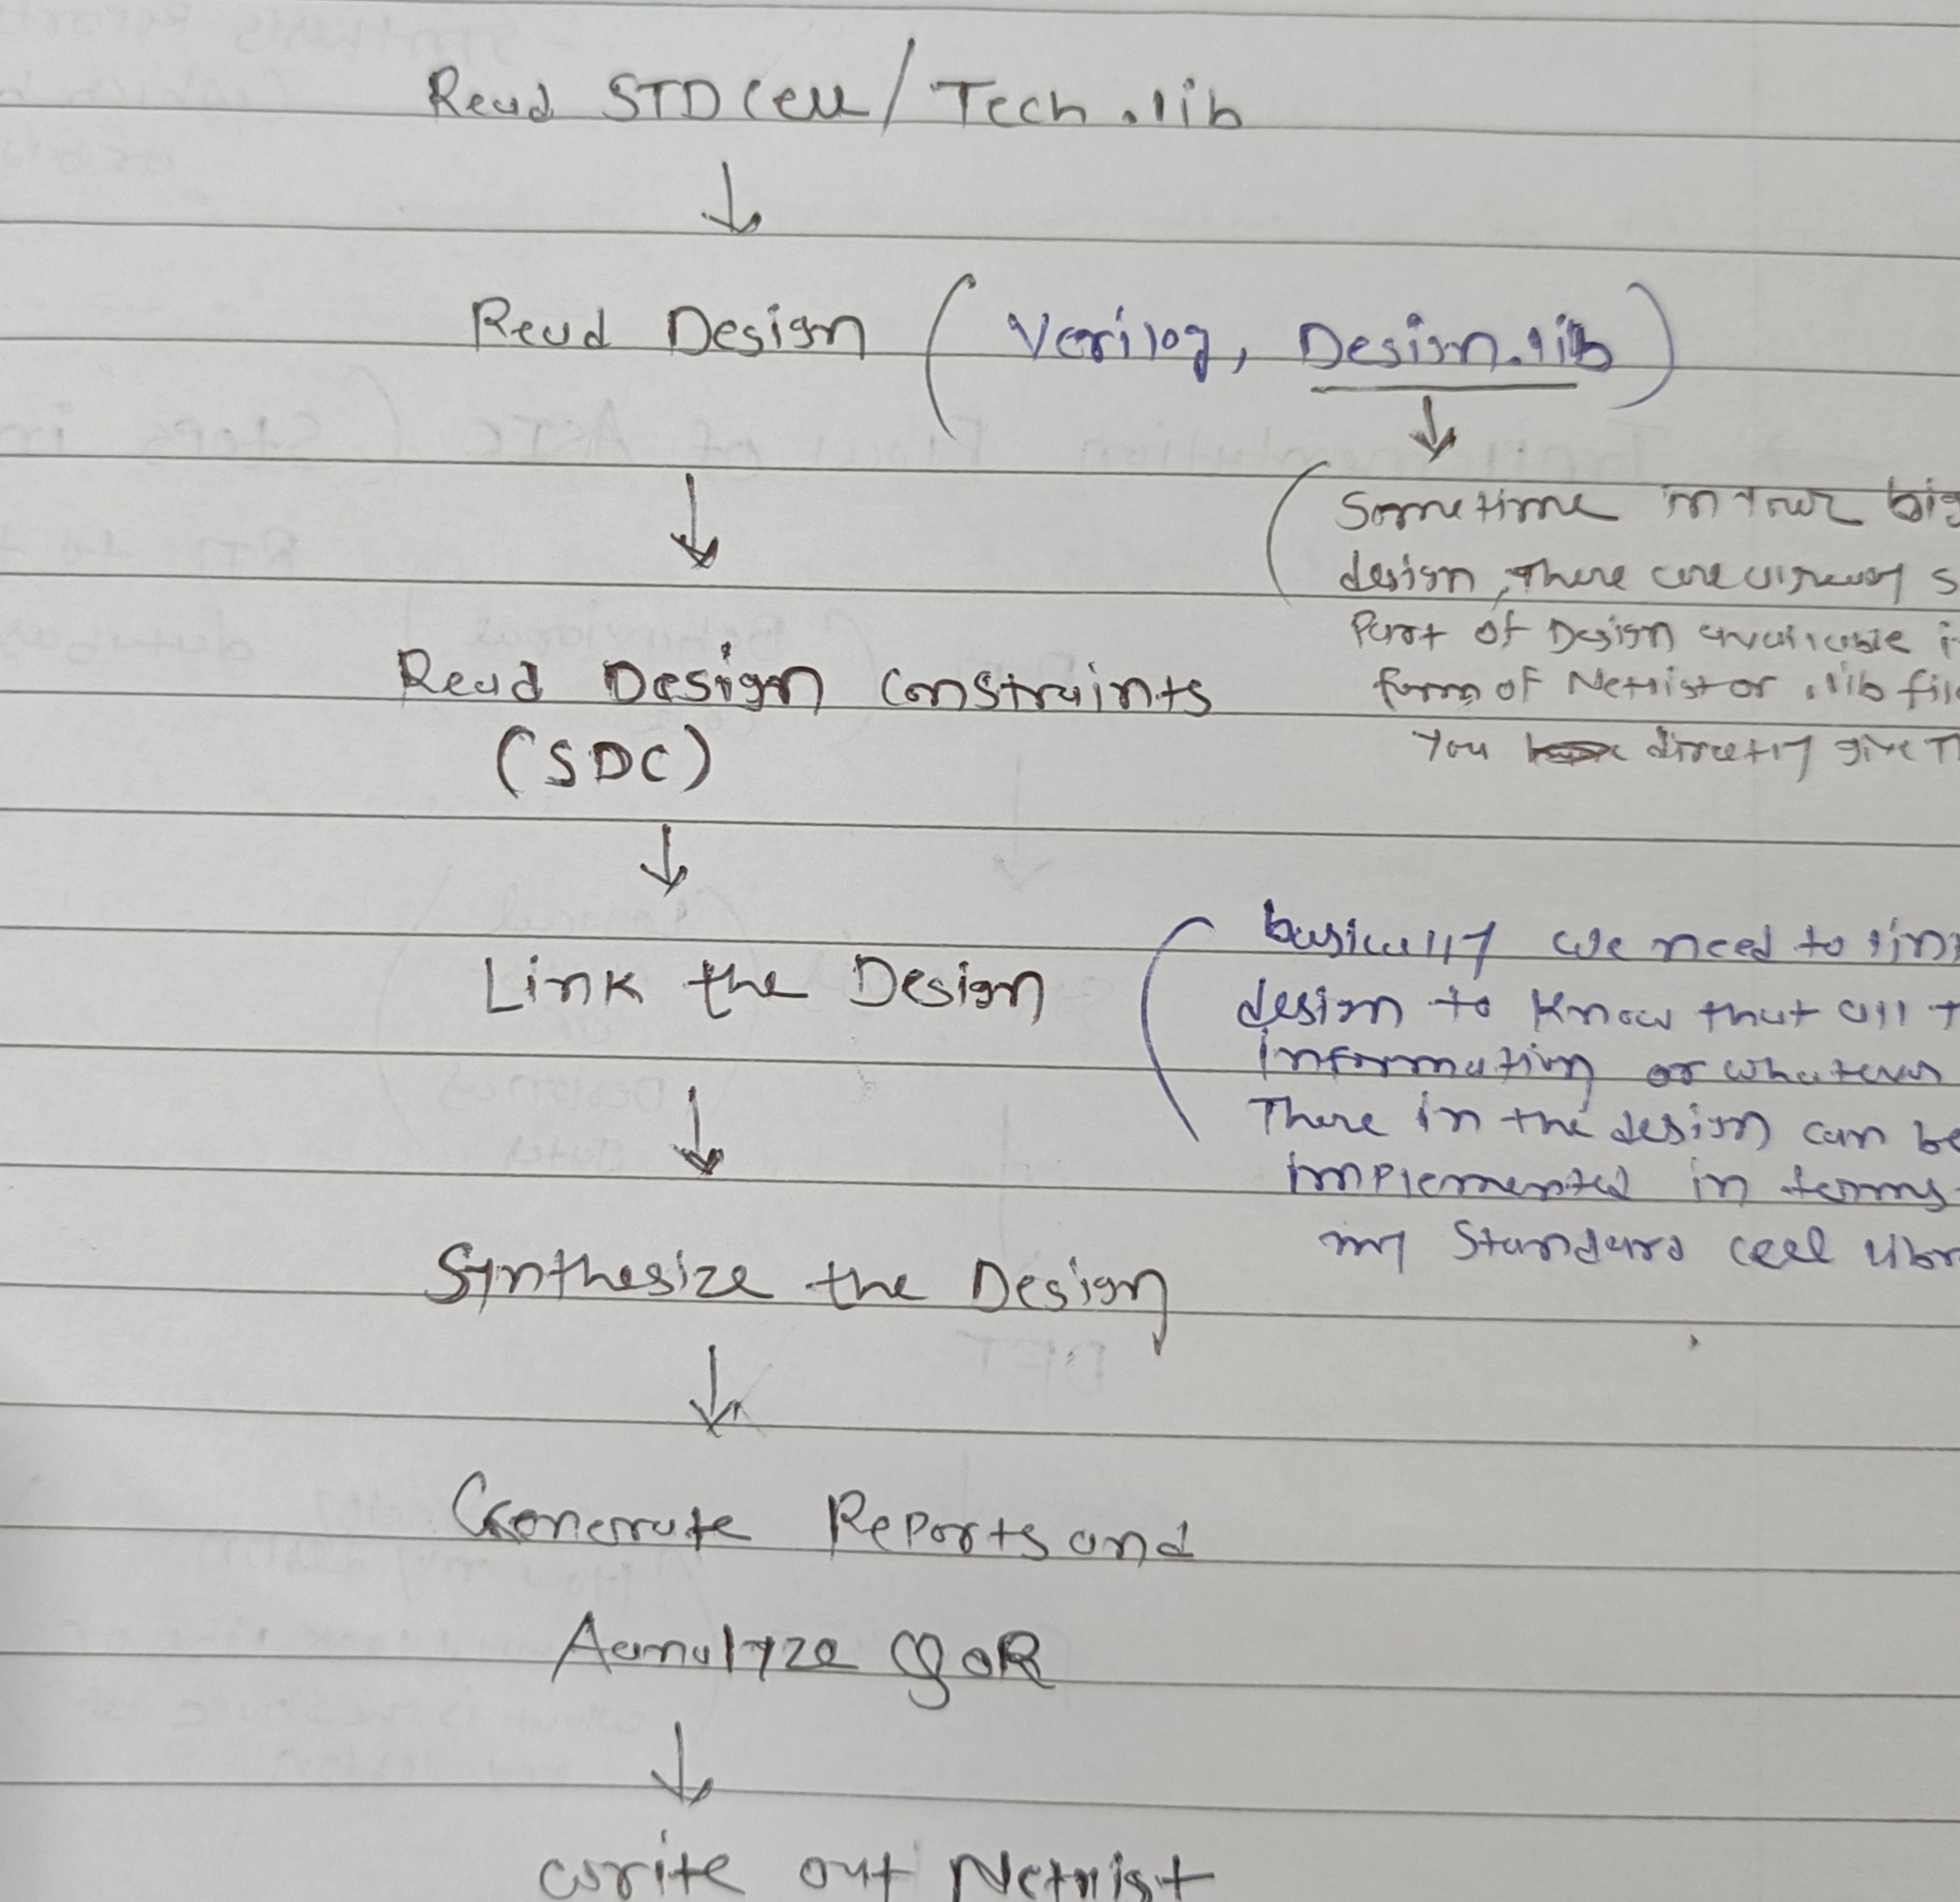 Read STD Cell / Tech .lib
Read Design ( Verilog, Design.lib )
( Sometime in your big
design, there are already s
Part of Design available i
form of Netlist or .lib file
You directly give Th
Read Design Constraints
(SDC)
Link the Design
( basically we need to link
design to know that all t
information or whatever
There in the design can be
implemented in terms
my Standard cell libr
Synthesize the Design
Generate Reports and
Aanalyze QoR
write out Netlist